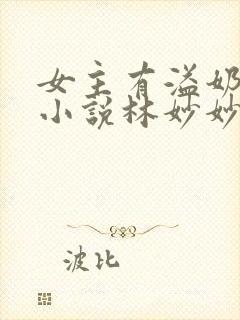 女主有溢奶
小说林妙妙
波比